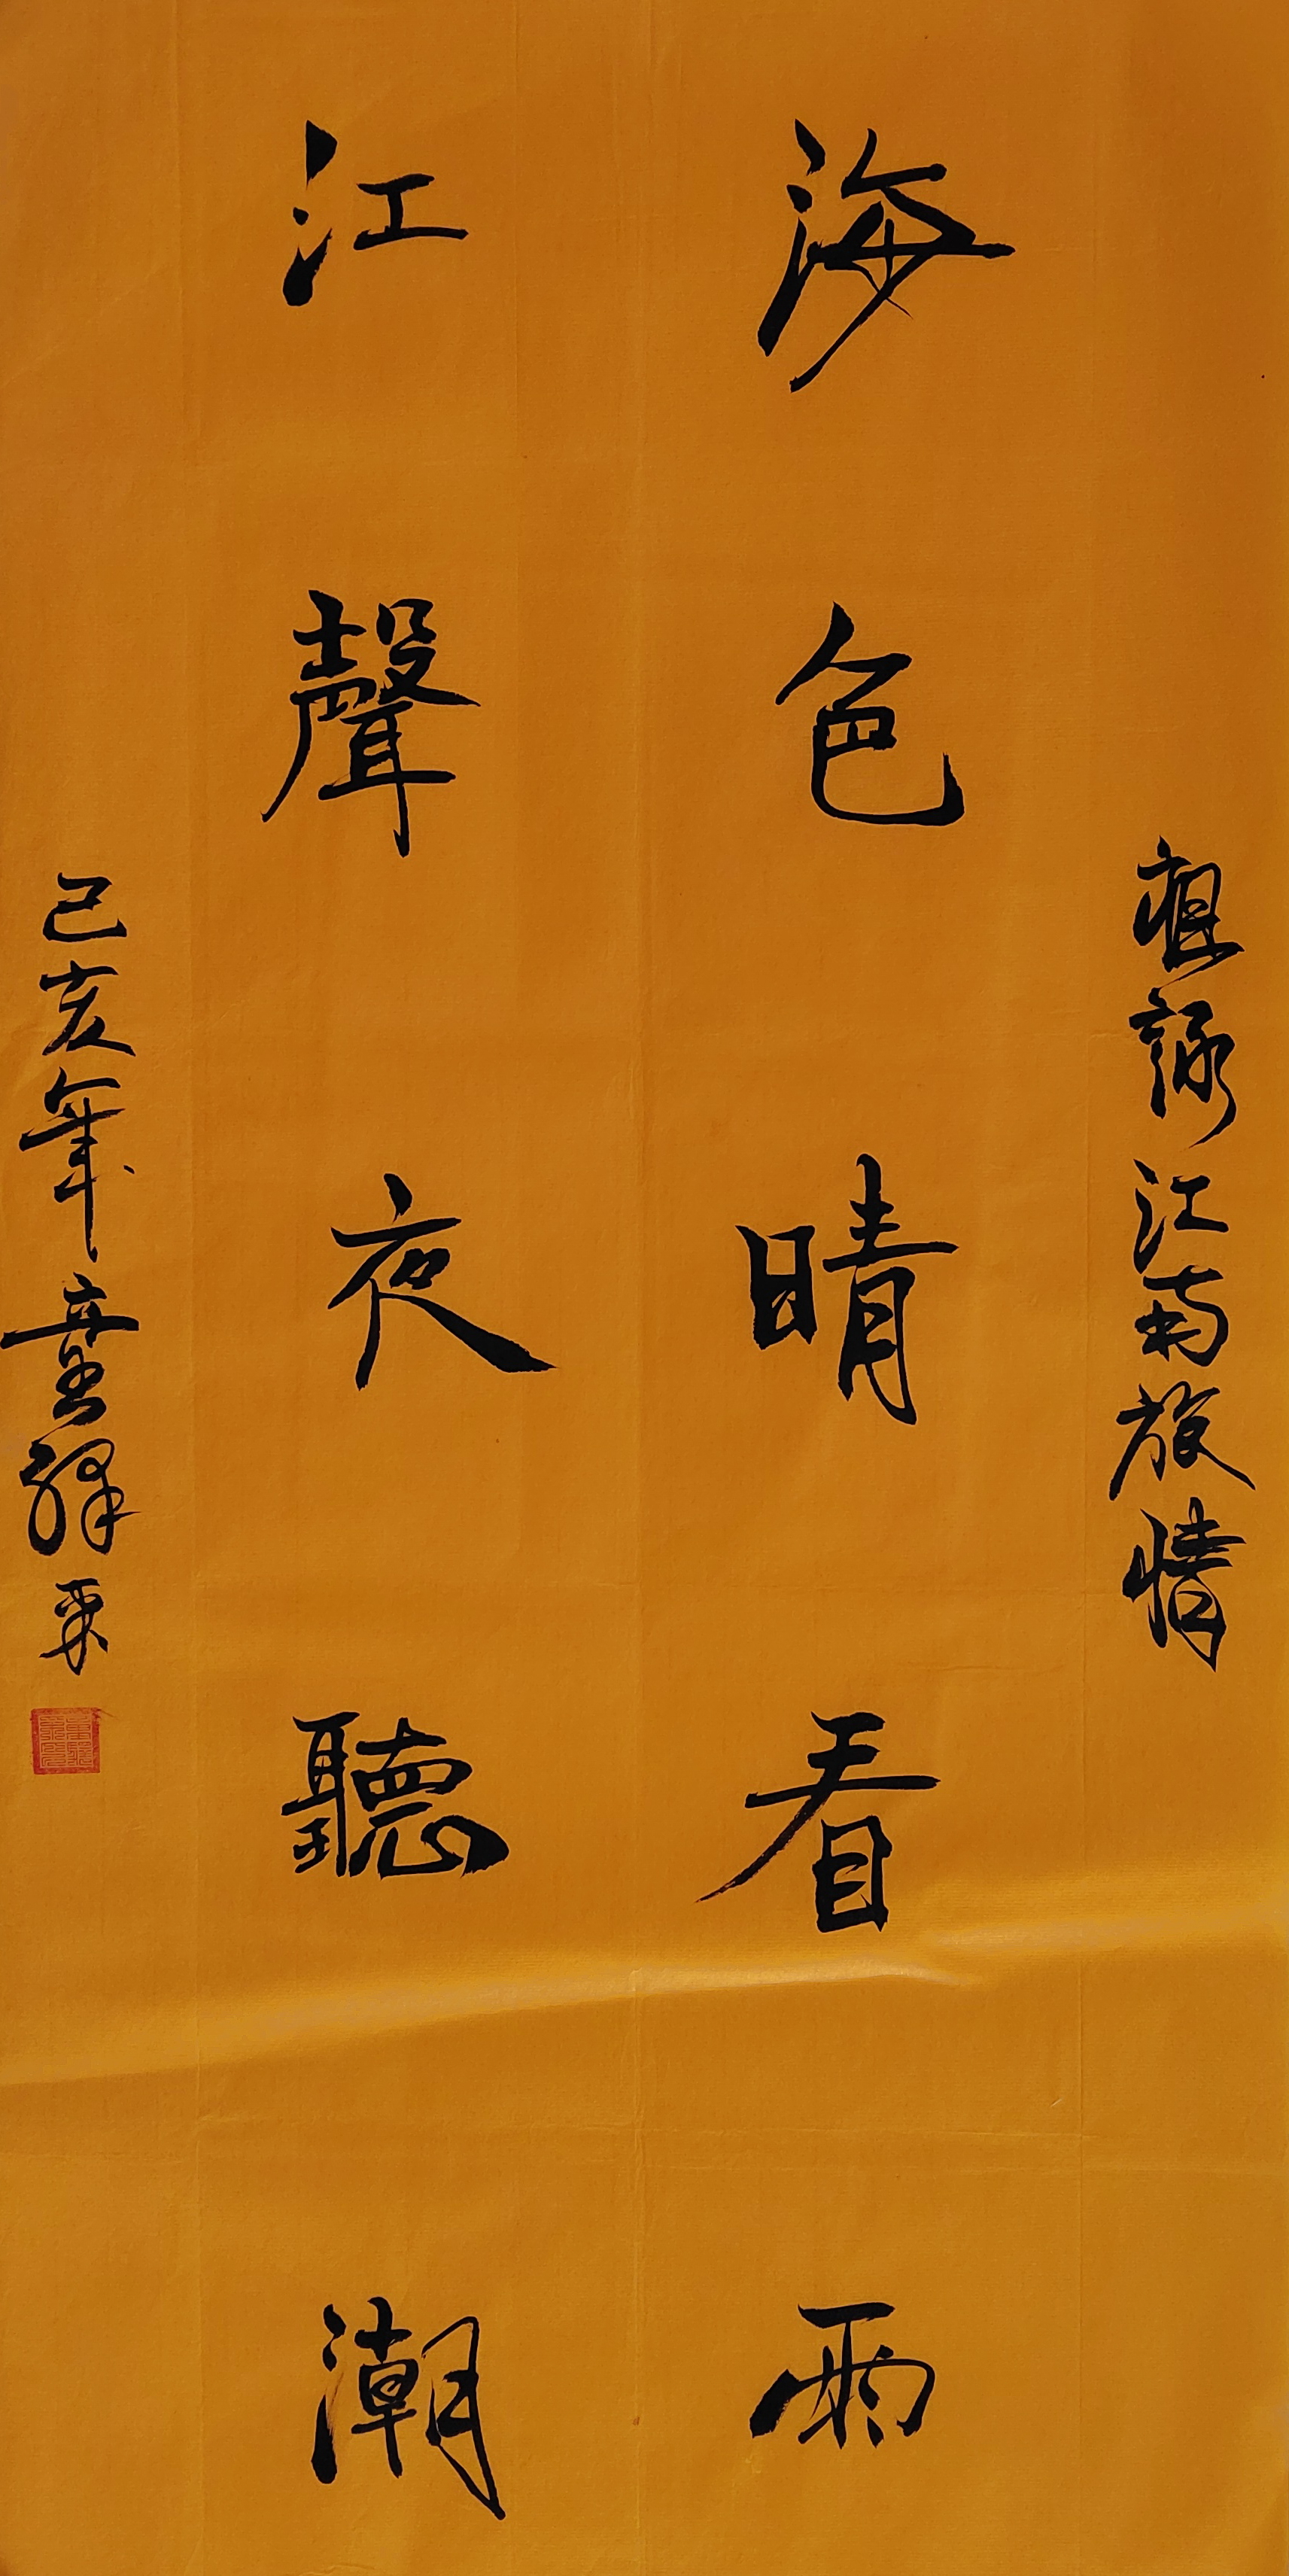 詠江南旅情
海色晴看雨
江聲夜聽潮
己亥年童釋